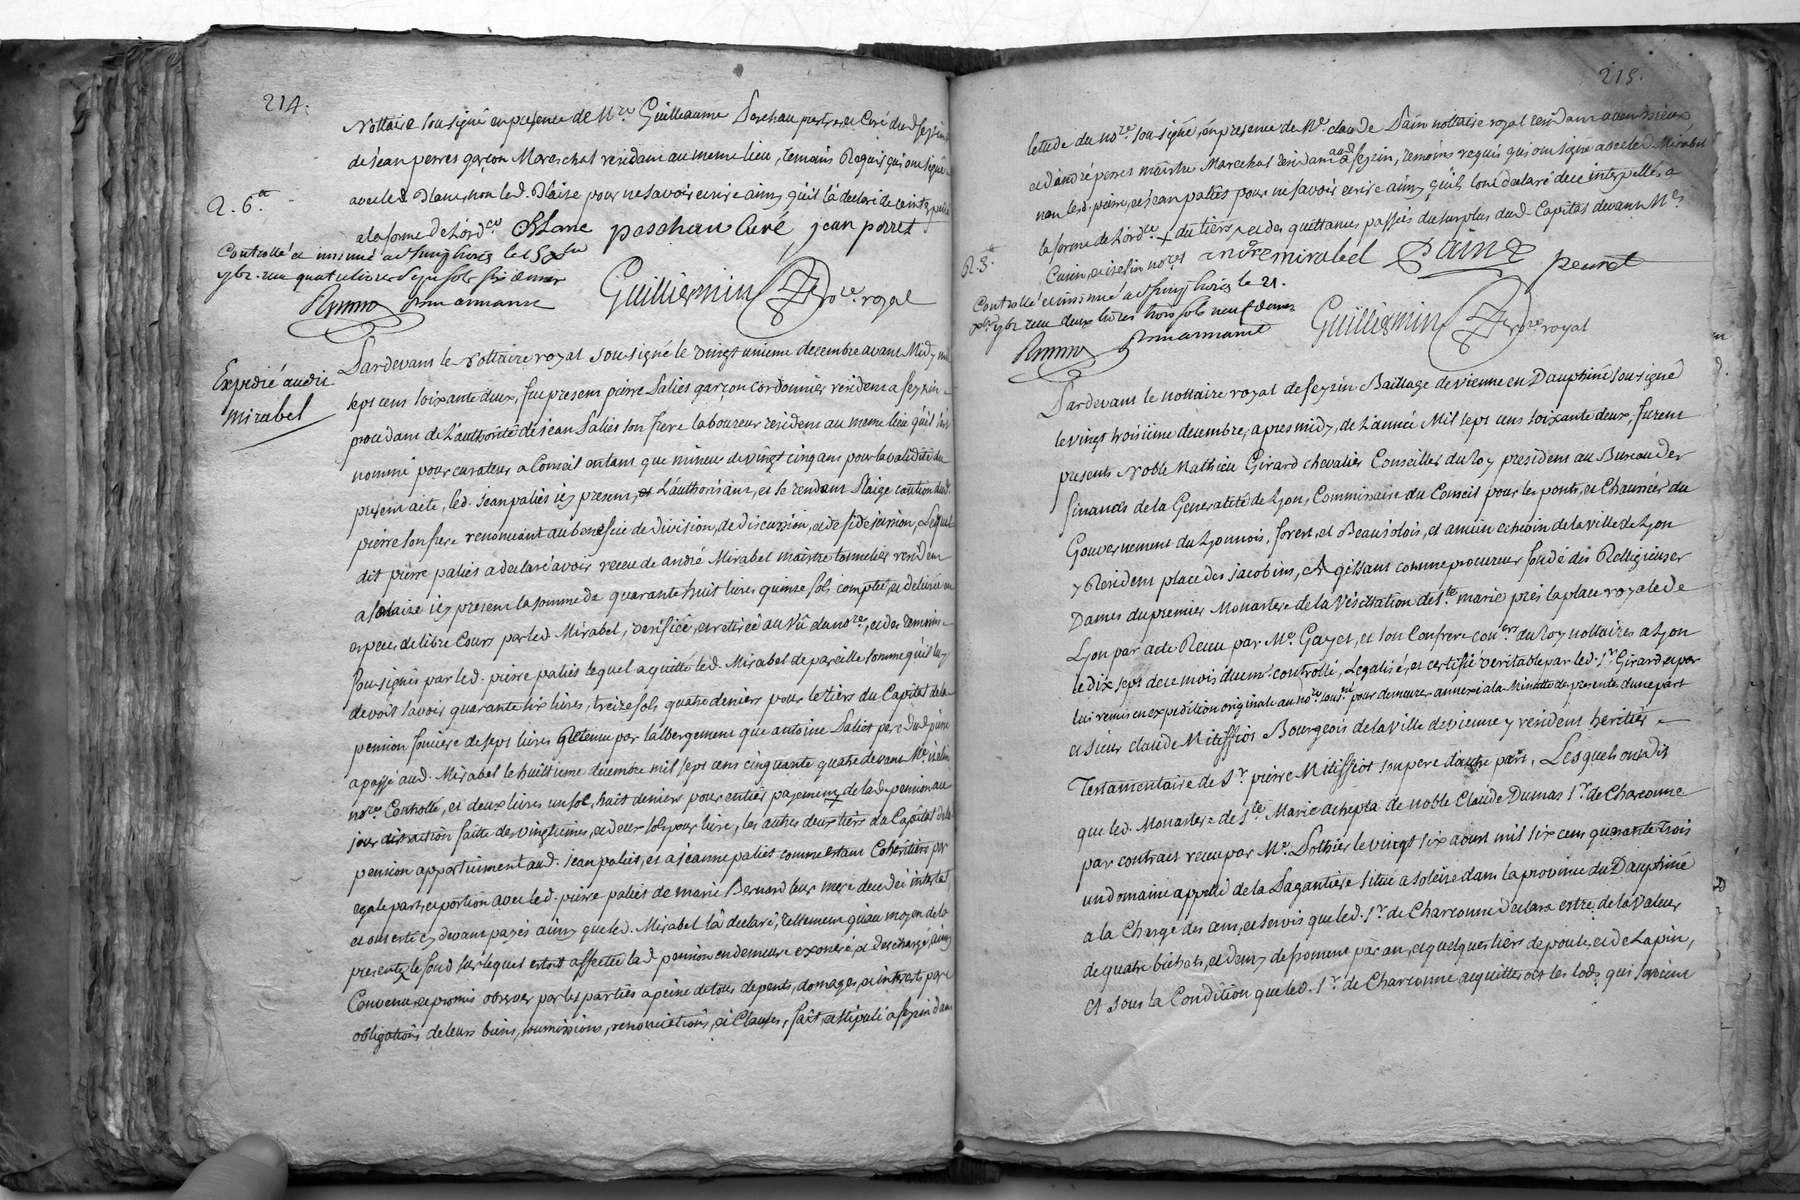 214.
Nottaire sousigné en presence de Mre Guilleaume Paschau prestre et Curé dud. feyzin
de jean perret garçon Mareschal residant au meme lieu, temoins Requis qui ont signé
avec led. Blanc, non led. Blaise pour ne savoir ecrire ainsy qu'il l'a declaré de ce interpellé
a la forme de l'ordce Blanc paschau Curé jean perret
R. 6.
Controllé et insinué a St Simphorien le
Guilliermin Nore. royal
Pardevant le Nottaire royal sousigné le vingt unieme decembre avant Midy mil
Expedié audit
mirabel
sept cens soixante deux, fut present pierre paliet garçon cordonnier resident a feyzin
procedant de l'authorité de jean paliet son frere laboureur resident au meme lieu qu'il a
nommé pour curateur a Conseil en tant que mineur de vingt cinq ans pour la validité du
present acte, led. jean paliet icy present, L'authorisant, et se rendant Plaige caution dud.
pierre son frere renonceant au benefice de division, de discussion, et de fidejussion, Lequel
dit pierre paliet a declaré avoir receu de andré Mirabel maitre tonnelier resident
a solaize icy present la somme de quarante huit livres quinze sols compté et delivré en
especes de libre Cours par led. Mirabel, verifiée, et retirée au vû du nore, et des temoins
sousignés par led. pierre paliet lequel a quitté led. Mirabel de pareille somme qu'il luy
devoit savoir quarante six livres, treize sols, quatre deniers pour le tiers du Capital de la
pension fonciere de sept livres Retenue par l'albergement que antoine paliet pere dud. pierre
a passé aud. Mirabel le huittieme decembre mil sept cens cinquante quatre devant Me
nore Controllé, et deux livres un sol, huit deniers pour entier payement de lad. pension au
jour distraction faitte des vingtiemes, et deux sols pour livre, les autres deux tiers du Capital de la
pension appartiennent aud. jean paliet, et a jeanne paliet comme estant Coheritiers par
egale part, et portion avec led. pierre paliet de marie Bernard leur mere decedée intestat
et ont esté cy devant payés ainsy que led. Mirabel l'a declaré, tellement qu'au moyen de la
presente, le fond sur lequel estoit affectée lad. pension en demeure exoneré, et dechargé, ainsy
Convenu, et promis observer par les parties a peine de tous depents, domages, et interets par
obligations de leurs biens, soumissions, renonciations, et Clauses, fait, et stipulé a feyzin dans
215.
letude du nore. sousigné, en presence de Me. claude Pain nottaire royal residant a
et d'andré perret maitre Marechal residant aud. feyzin, temoins requis qui ont signé avec led. Mirabel
non led. pierre, et jean paliet pour ne savoir ecrire ainsy qu'ils l'ont declaré de ce interpellés a
la forme de l'ordce + du tiers, et des quittances passées du surplus dud. Capital devant Me
nores andre mirabel Pain perret
R. 3.
Controllé et insinué a St Simphorien le 21.
xbre 1762 receu deux livres trois sols neuf deniers
Guilliermin Nore royal
Pardevant le nottaire royal de feyzin Bailliage de vienne en Dauphiné sousigné
le vingt troisieme decembre, apres midy, de l'année Mil sept cens soixante deux, furent
presents Noble Mathieu Girard chevalier Conseiller du Roy president au Bureau des
finances de la Generalité de Lyon, Commissaire du Conseil pour les ponts, et Chaussées du
Gouvernement du Lyonnois, forest, et Beaujolois, et ancien echevin de la ville de Lyon
y Resident place des jacobins, Agissant comme procureur fondé des Relligieuses
Dames du premier Monastere de la Visittation de Ste marie près la place royale de
Lyon par acte Receu par Me. Gayet, et son Confrere coners du Roy nottaires a Lyon
le dix sept de ce mois duëmt controllé, Legalisé, et certifié veritable par led. Sr. Girard et par
lui remis en expedition originale au nore sousné pour demeurer annexé a la Minutte des presentes d'une part
et sieur claude Mitiffiot Bourgeois de la ville de vienne y resident heritier
Testamentaire de Sr. pierre Mitiffiot son pere d'autre part, Lesquels ont dit
que led. Monastere de Ste Marie achepta de noble Claude Dumas Sr. de Charconne
par contract receu par Me. Lothier le vingt six aoust mil six cens quarante trois
un domaine appellé de la Pagantiere situé a soleize dans la province du Dauphiné
a la Charge des cens, et servis que led. Sr. de Charconne declara estre de la valeur
de quatre bichets, et demy de froment par an, et quelques tiers de poule, et de Lapin,
et sous la Condition que led. Sr. de Charconne acquitteroit les lods qui seroient